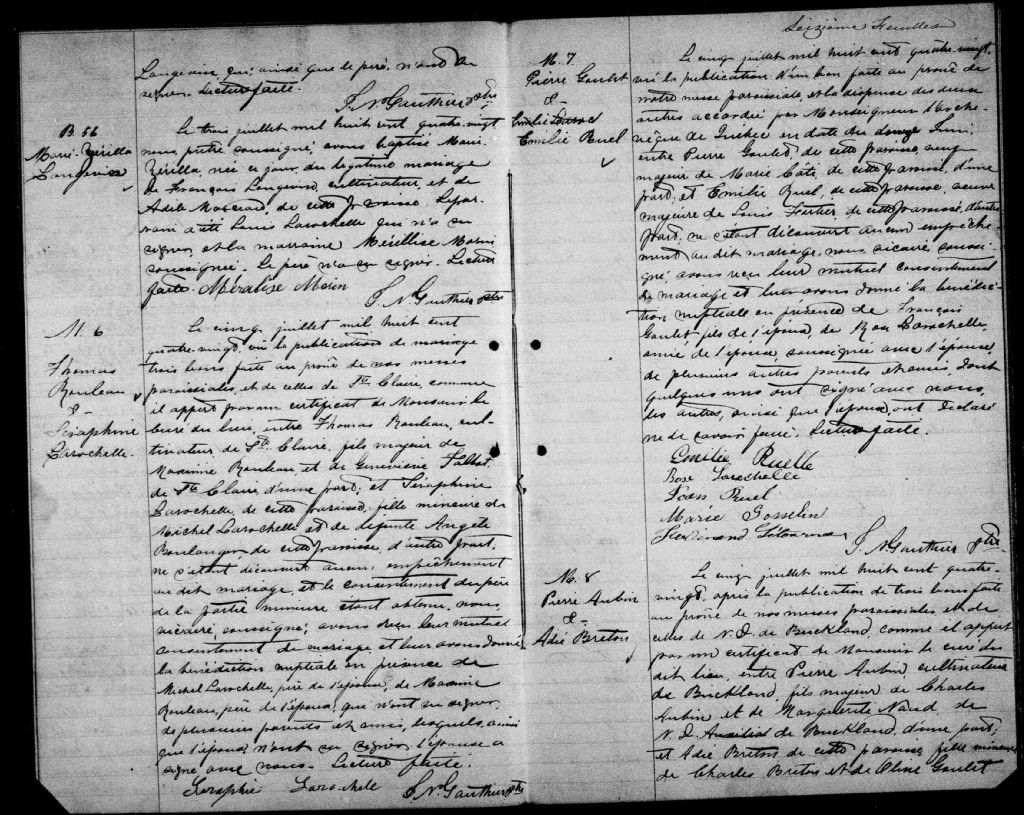 Langevin, qui, ainsi que le père, n'ont su
signer. Lecture faite.
J. N. Gauthier Ptre
B. 56
Marie Zérilla
Langevin
Le trois juillet mil huit cent quatre-vingt
nous prêtre soussigné, avons baptisé Marie
Zérilla, née ce jour, du légitime mariage
de François Langevin, cultivateur, et de
Adèle Morceau, de cette paroisse. Le par-
rain a été Louis Larochelle qui n'a su
signer, et la marraine Méellise Morin
soussignée. Le père n'a su signer. Lecture
faite. Méralise Morin
J. N. Gauthier Ptre
M. 6
Thomas
Rouleau
&
Séraphine
Larochelle.
Le cinq juillet mil huit cent
quatre-vingt, vu la publication de mariage
trois bans faite au prône de nos messes
paroissiales, et de celles de Ste Claire, comme
il appert par un certificat de Monsieur le
Curé du lieu, entre Thomas Rouleau, cul-
tivateur, de Ste Claire, fils majeur de
Maxime Rouleau et de Geneviève Talbot
de Ste Claire, d'une part; et Séraphine
Larochelle, de cette paroisse, fille mineure de
Michel Larochelle et de défunte Angèle
Boulanger de cette paroisse, d'autre part,
ne s'étant découvert aucun empêchement
au dit mariage, et le consentement du père
de la partie mineure étant obtenu, nous,
vicaire, soussigné, avons reçu leur mutuel
consentement de mariage, et leur avons donné
la bénédiction nuptiale en présence de
Michel Larochelle, père de l'épouse, de Maxime
Rouleau, père de l'époux, qui n'ont su signer,
de plusieurs parents et amis, lesquels, ainsi
que l'époux, n'ont su signer, l'épouse a
signé avec nous. Lecture faite.
Séraphie Larochele J. N. Gauthier Ptre
Seizième Feuillet
M. 7
Pierre Goulet
&
Emilie Ruel
Le cinq juillet mil huit cent quatre-vingt,
vu la publication d'un ban faite au prône de
notre messe paroissiale, et la dispense des deux
autres accordée par Monseigneur l'Arche-
vêque de Québec en date du douze Juin
entre Pierre Goulet, de cette paroisse, veuf
majeur de Marie Côté, de cette paroisse, d'une
part, et Emilie Ruel, de cette paroisse, veuve
majeure de Louis Fortier, de cette paroisse, d'autre
part, ne s'étant découvert aucun empêche-
ment au dit mariage, nous, vicaire, soussi-
gné, avons reçu leur mutuel consentement
de mariage et leur avons donné la bénédic-
tion nuptiale en présence de François
Goulet, fils de l'époux, de Rose Larochelle,
amie de l'épouse, soussignée avec l'épouse,
de plusieurs autres parents et amis, dont
quelques uns ont signé avec nous,
les autres, ainsi que l'époux, ont déclaré
ne savoir faire. Lecture faite.
Emilie Ruelle
Rose Larochelle
Ruel
Marie Gosselin
Ferdinand
J. N. Gauthier Ptre
M. 8
Pierre Aubin
&
Adié Breton
Le cinq juillet mil huit cent quatre-
vingt, après la publication de trois bans faite
au prône de nos messes paroissiales, et de
celles de N. D. de Buckland, comme il appert
par un certificat de Monsieur le curé du
dit lieu, entre Pierre Aubin, cultivateur
de Buckland, fils majeur de Charles
Aubin et de Marguerite Nard de
N. D. Auxiliat. de Buckland, d'une part;
et Adié Breton de cette paroisse, fille mineure
de Charles Breton et de Oliné Goulet